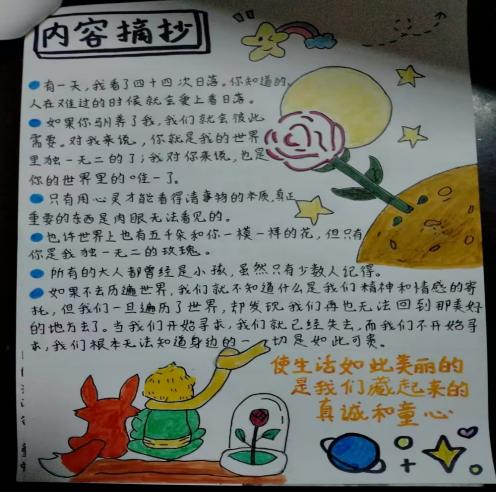 内容摘抄
有一天,我看了四十四次日落。你知道的,
人在难过的时候就会爱上看日落。
如果你驯养了我,我们就会彼此
需要。对我来说,你就是我的世界
里独一无二的了;我对你来说,也是
你的世界里的唯一了。
只有用心灵才能看得清事物的本质,真正
重要的东西是肉眼无法看见的。
也许世界上也有五千朵和你一模一样的花,但只有
你是我独一无二的玫瑰。
所有的大人都曾经是小孩,虽然只有少数人记得。
如果不去历遍世界,我们就不知道什么是我们精神和情感的寄
托,但我们一旦遍历了世界,却发现我们再也无法回到那美好
的地方去了。当我们开始寻求,我们就已经失去,而我们不开始寻
求,我们根本无法知道身边的一切是如此可贵。
使生活如此美丽的
是我们藏起来的
真诚和童心